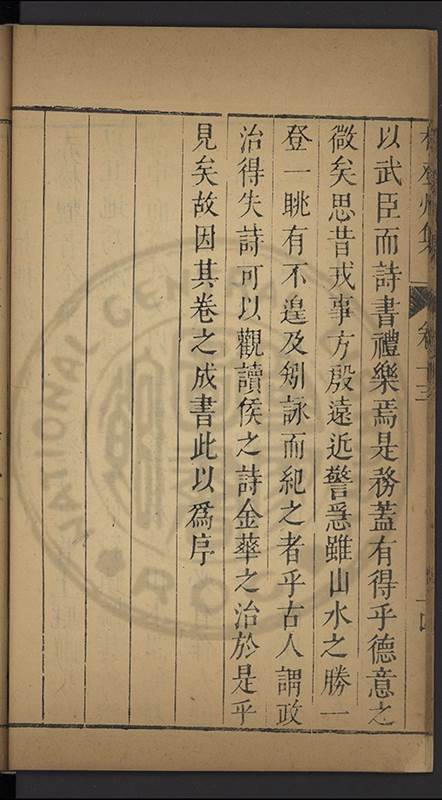 卷十三
十四
以武臣而詩書禮樂焉是務蓋有得乎德意之
微矣思昔戎事方殷遠近警急雖山水之勝一
登一眺有不遑及矧詠而紀之者乎古人謂政
治得失詩可以觀讀侯之詩金華之治於是乎
見矣故因其卷之成書此以為序